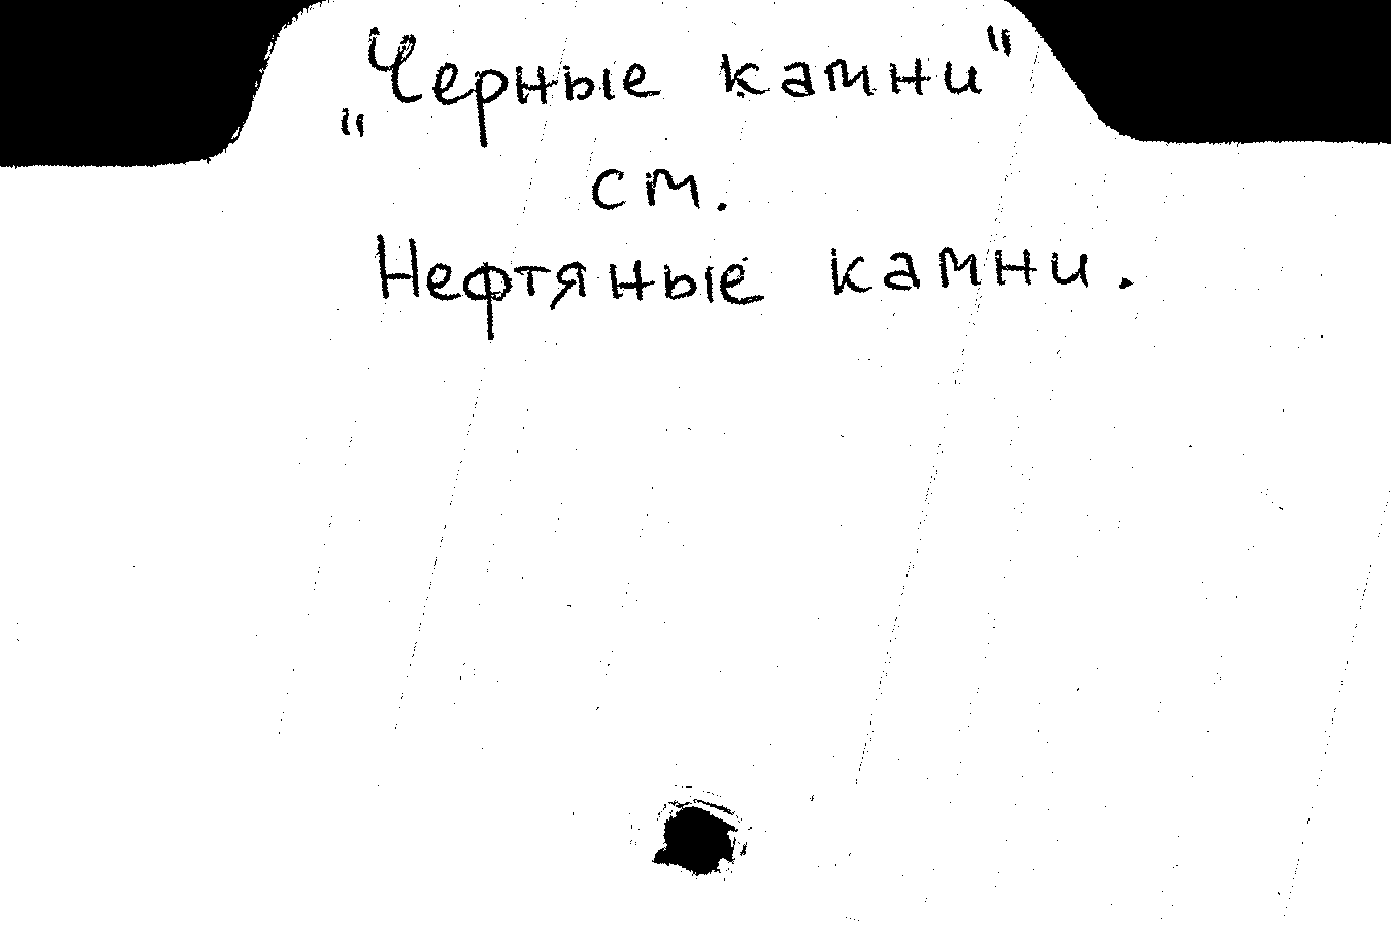 "Черные камни"
см.
Нефтяные камни.